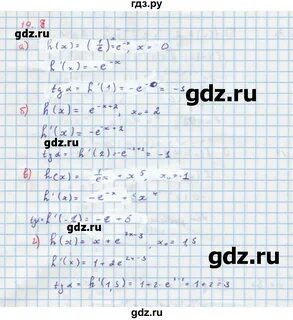 гдз.ру
19.8
а) h(x) = (1/e)^x = e^-x, x = 0
h'(x) = -e^-x
tgα = h'(1) = -e^-0 = -1
б) h(x) = e^-x+2, x₀ = 2
h'(x) = -e^-x+2
tgα = h'(2) = -e^-2+2 = -1
в) h(x) = 1/e^x + x^5, x₀ = -1
h'(x) = -e^-x + 5x^4
tgα = h'(-1) = -e + 5
г) h(x) = x + e^2x-3, x₀ = 1,5
h'(x) = 1 + 2e^2x-3
tgα = h'(1,5) = 1 + 2·e^3-3 = 1 + 2 = 3
gdz.ru
gdz.ru
gdz.ru
gdz.ru